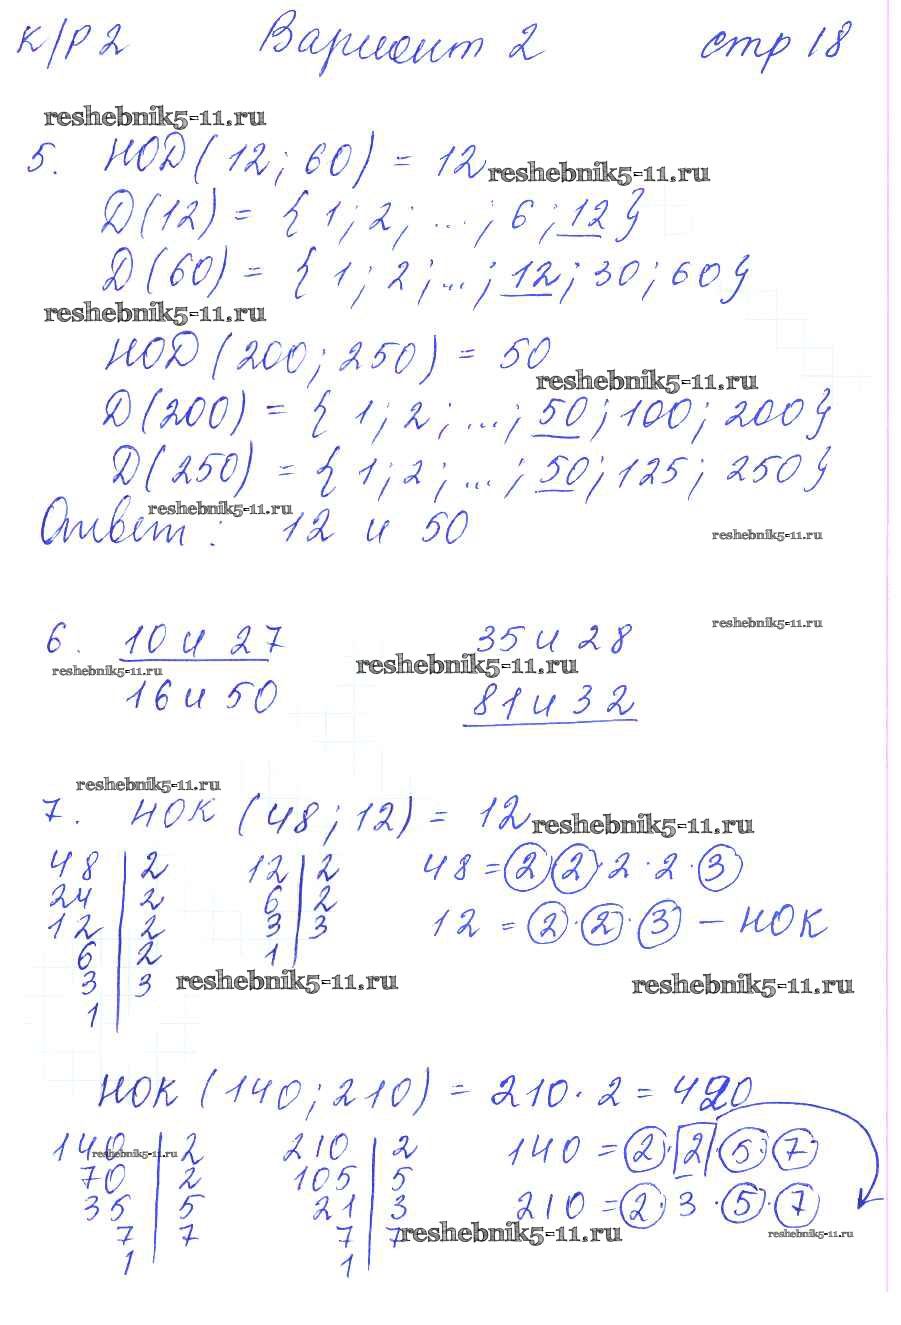 К/Р 2 Вариант 2 стр 18
reshebnik5-11.ru
5. НОД (12; 60) = 12 reshebnik5-11.ru
Д(12) = {1; 2; ...; 6; 12}
Д(60) = {1; 2; ...; 12; 30; 60}
reshebnik5-11.ru
НОД (200; 250) = 50
reshebnik5-11.ru
Д(200) = {1; 2; ...; 50; 100; 200}
Д(250) = {1; 2; ...; 50; 125; 250}
reshebnik5-11.ru
Ответ: 12 и 50
reshebnik5-11.ru
reshebnik5-11.ru
6. 10 и 27 35 и 28
reshebnik5-11.ru reshebnik5-11.ru
16 и 50 81 и 32
reshebnik5-11.ru
7. НОК (48; 12) = 12 reshebnik5-11.ru
48 | 2 12 | 2 48 = 2 2 · 2 · 2 · 3
24 | 2 6 | 2
12 | 2 3 | 3 12 = 2 · 2 · 3 – НОК
6 | 2 1
3 | 3 reshebnik5-11.ru reshebnik5-11.ru
1
НОК (140; 210) = 210 · 2 = 420
140 | 2 210 | 2 140 = 2 · 2 · 5 · 7
reshebnik5-11.ru
70 | 2 105 | 5
35 | 5 21 | 3 210 = 2 · 3 · 5 · 7
7 | 7 7 | 7 reshebnik5-11.ru reshebnik5-11.ru
1 1